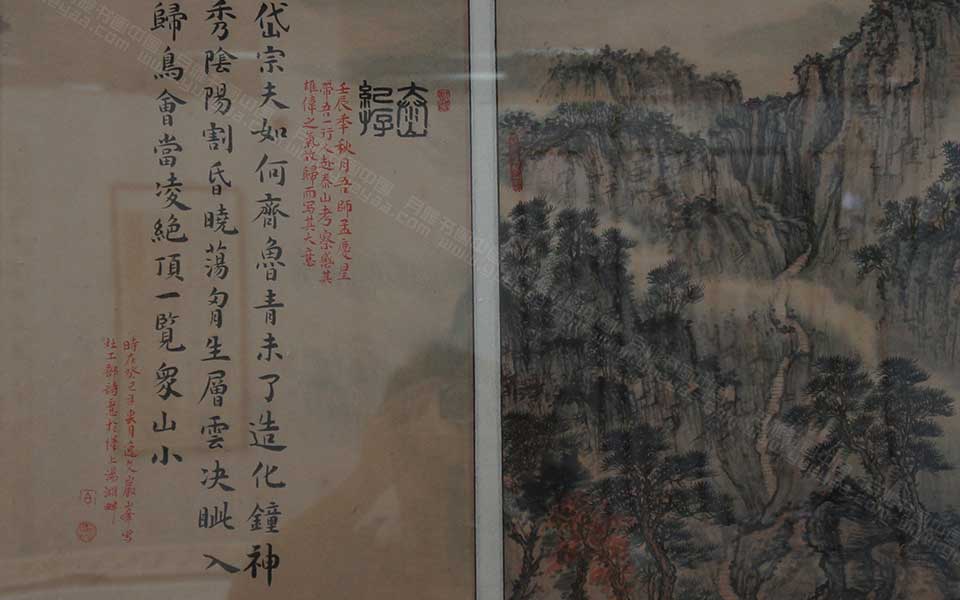 壬辰季秋月吾師孟慶星
帶吾一行人赴泰山考察感其
雄偉之氣故歸而写其大意
岱宗夫如何齊魯青未了造化鐘神
秀陰陽割昏曉蕩胷生層雲决眦入
歸鳥會當凌絶頂一覽衆山小
時在癸巳年月
杜工部詩意於上湯湖畔